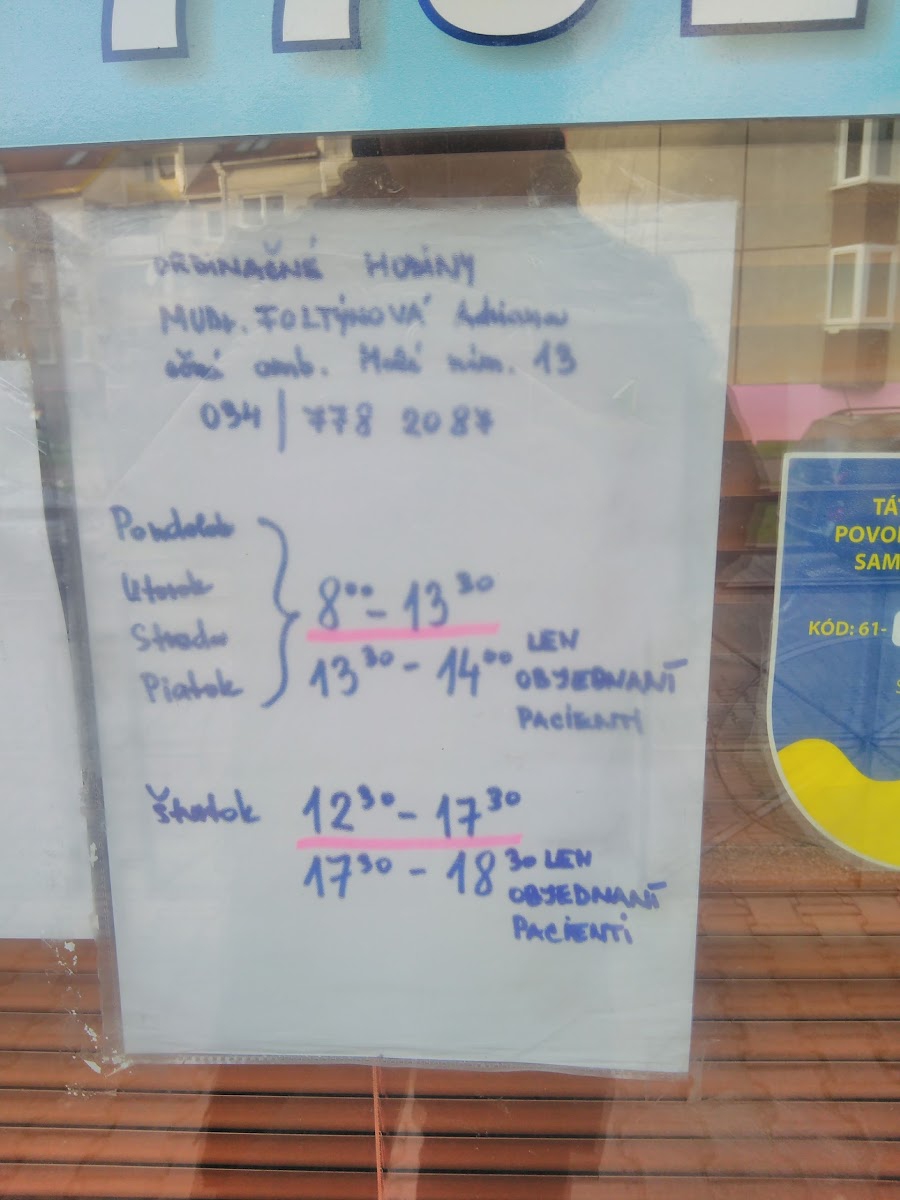 ORDINAČNÉ HODINY
MUDr. FOLTÝNOVÁ Adriana
očná amb. Malé nám. 13
034 | 778 2087
Pondelok
Utorok
Streda
Piatok
8⁰⁰ - 13³⁰
13³⁰ - 14⁰⁰ LEN
OBJEDNANÍ
PACIENTI
Štvrtok
12³⁰ - 17³⁰
17³⁰ - 18³⁰ LEN
OBJEDNANÍ
PACIENTI
KÓD: 61-